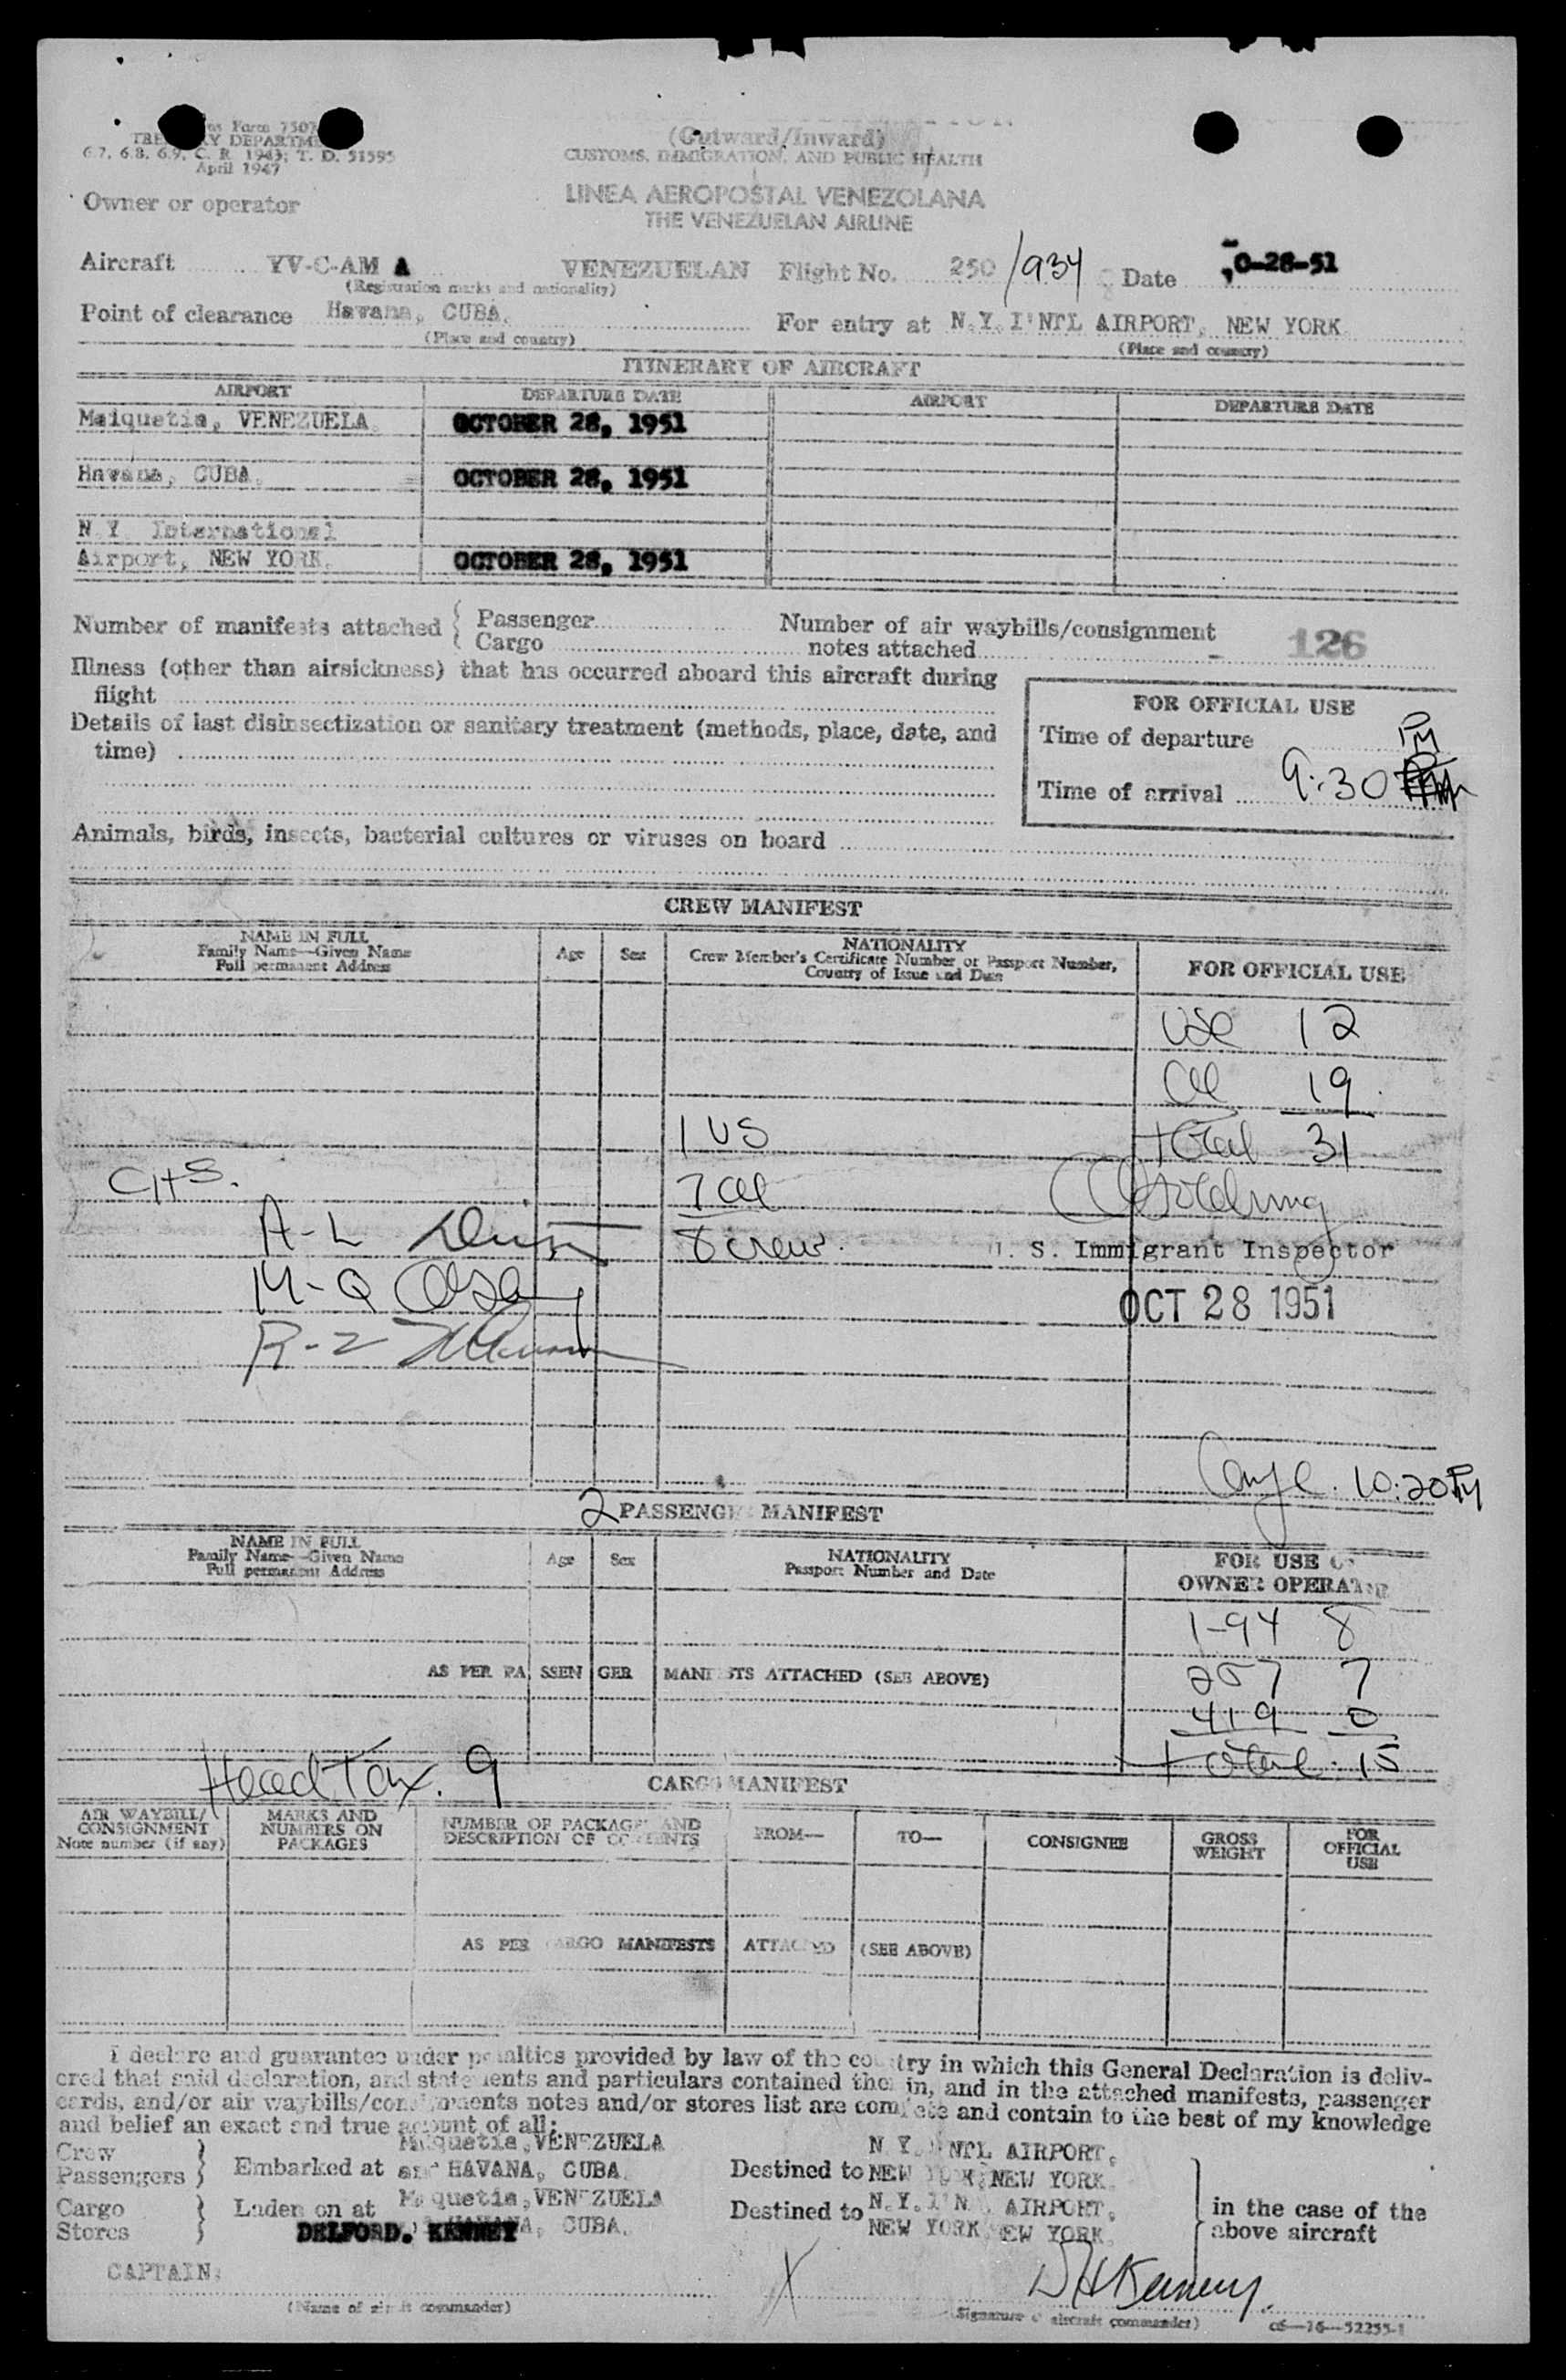 Form 7507
TREASURY DEPARTMENT
6.7, 6.8, 6.9, C. R. 1943; T. D. 51595
April 1947
(Outward/Inward)
CUSTOMS, IMMIGRATION, AND PUBLIC HEALTH
Owner or operator
LINEA AEROPOSTAL VENEZOLANA
THE VENEZUELAN AIRLINE
Aircraft YV-C-AM A VENEZUELAN Flight No. 250 /934 Date 0-28-51
(Registration marks and nationality)
Point of clearance Havana, CUBA. For entry at N.Y. I'NTL AIRPORT, NEW YORK.
(Place and country) (Place and country)
ITINERARY OF AIRCRAFT
AIRPORT DEPARTURE DATE AIRPORT DEPARTURE DATE
Maiquetia, VENEZUELA. OCTOBER 28, 1951
Havana, CUBA. OCTOBER 28, 1951
N.Y. International
Airport, NEW YORK. OCTOBER 28, 1951
Number of manifests attached { Passenger Number of air waybills/consignment
Cargo notes attached - 126
Illness (other than airsickness) that has occurred aboard this aircraft during
flight
FOR OFFICIAL USE
Details of last disinsectization or sanitary treatment (methods, place, date, and
time)
Time of departure
Time of arrival 9:30 PM
Animals, birds, insects, bacterial cultures or viruses on board
CREW MANIFEST
NAME IN FULL
Family Name—Given Name
Full permanent Address
Age Sex
NATIONALITY
Crew Member's Certificate Number or Passport Number,
Country of Issue and Date
FOR OFFICIAL USE
USC 12
19
1 US total 31
CHS. 7
A-L 8 crew. U. S. Immigrant Inspector
M-Q
OCT 28 1951
R-Z
10:20 PM
2 PASSENGER MANIFEST
NAME IN FULL
Family Name—Given Name
Full permanent Address
Age Sex
NATIONALITY
Passport Number and Date
FOR USE OF
OWNER OPERATOR
1-94 8
AS PER PA SSEN GER MANIFESTS ATTACHED (SEE ABOVE) 257 7
419 0
Head Tax. 9 total. 15
CARGO MANIFEST
AIR WAYBILL/
CONSIGNMENT
Note number (if any)
MARKS AND
NUMBERS ON
PACKAGES
NUMBER OF PACKAGES AND
DESCRIPTION OF CONTENTS
FROM— TO— CONSIGNEE
GROSS
WEIGHT
FOR
OFFICIAL
USE
AS PER CARGO MANIFESTS ATTACHED (SEE ABOVE)
I declare and guarantee under penalties provided by law of the country in which this General Declaration is deliv-
ered that said declaration, and statements and particulars contained therein, and in the attached manifests, passenger
cards, and/or air waybills/consignments notes and/or stores list are complete and contain to the best of my knowledge
and belief an exact and true account of all:
Crew
Passengers } Embarked at Maiquetia, VENEZUELA
and HAVANA, CUBA. Destined to N.Y. I'NTL AIRPORT,
NEW YORK, NEW YORK.
Cargo
Stores } Laden on at Maiquetia, VENEZUELA
HAVANA, CUBA. Destined to N.Y. I'NTL AIRPORT,
NEW YORK, NEW YORK.
in the case of the
above aircraft
DELFORD. KENNEY
CAPTAIN: X D H Kenney.
(Name of aircraft commander) Signature of aircraft commander)
c6—16—52255-1